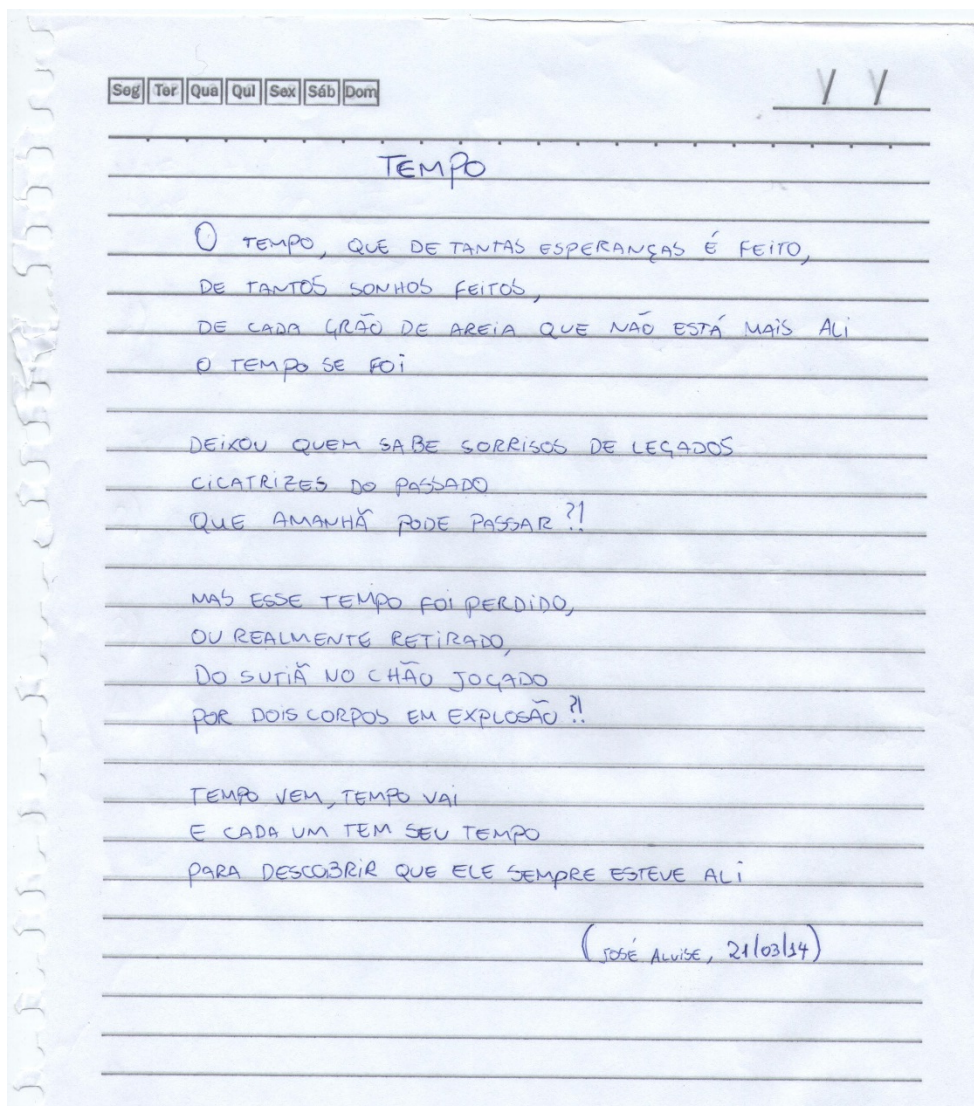 Seg Ter Qua Qui Sex Sáb Dom
/ /
TEMPO
O TEMPO, QUE DE TANTAS ESPERANÇAS É FEITO,
DE TANTOS SONHOS FEITOS,
DE CADA GRÃO DE AREIA QUE NÃO ESTÁ MAIS ALI
O TEMPO SE FOI
DEIXOU QUEM SABE SORRISOS DE LEGADOS
CICATRIZES DO PASSADO
QUE AMANHÃ PODE PASSAR?!
MAS ESSE TEMPO FOI PERDIDO,
OU REALMENTE RETIRADO,
DO SUTIÃ NO CHÃO JOGADO
POR DOIS CORPOS EM EXPLOSÃO?!
TEMPO VEM, TEMPO VAI
E CADA UM TEM SEU TEMPO
PARA DESCOBRIR QUE ELE SEMPRE ESTEVE ALI
(JOSÉ ALVISE, 21/03/14)